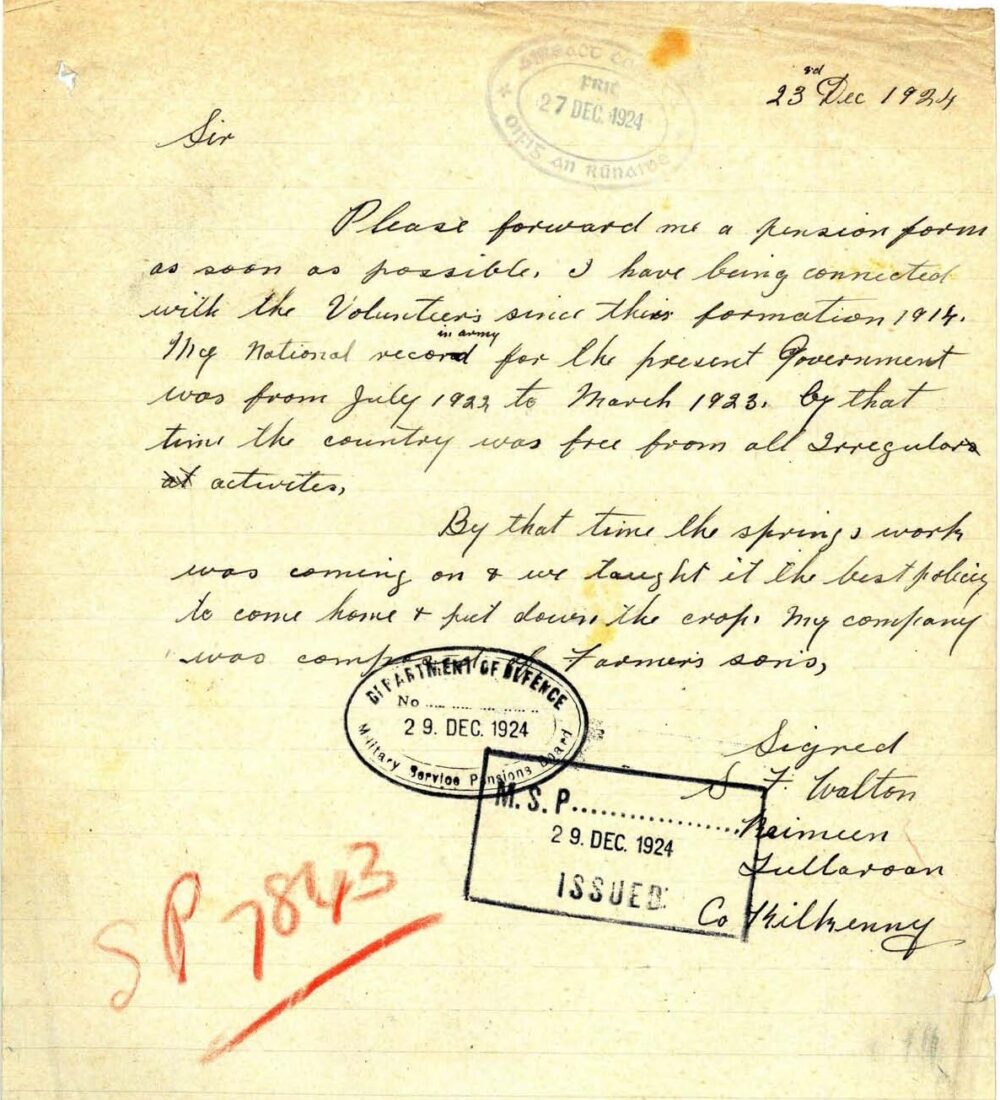 23rd Dec 1924
FRITH
27 DEC. 1924
OIFIG AN RÚNAIDHE
Sir
Please forward me a pension form
as soon as possible. I have being connected
with the Volunteers since their formation 1914.
My National record in army for the present Government
was from July 1922 to March 1923. By that
time the country was free from all Irregular
activites,
By that time the springs work
was coming on & we taught it the best policy
to come home & put down the crop. My company
was composed of Farmers sons,
DEPARTMENT OF DEFENCE
No
29. DEC. 1924
Military Service Pensions Board
Signed
S F. Walton
M. S. P.
29. DEC. 1924
ISSUED
Tullaroan
Co Kilkenny
SP 7843